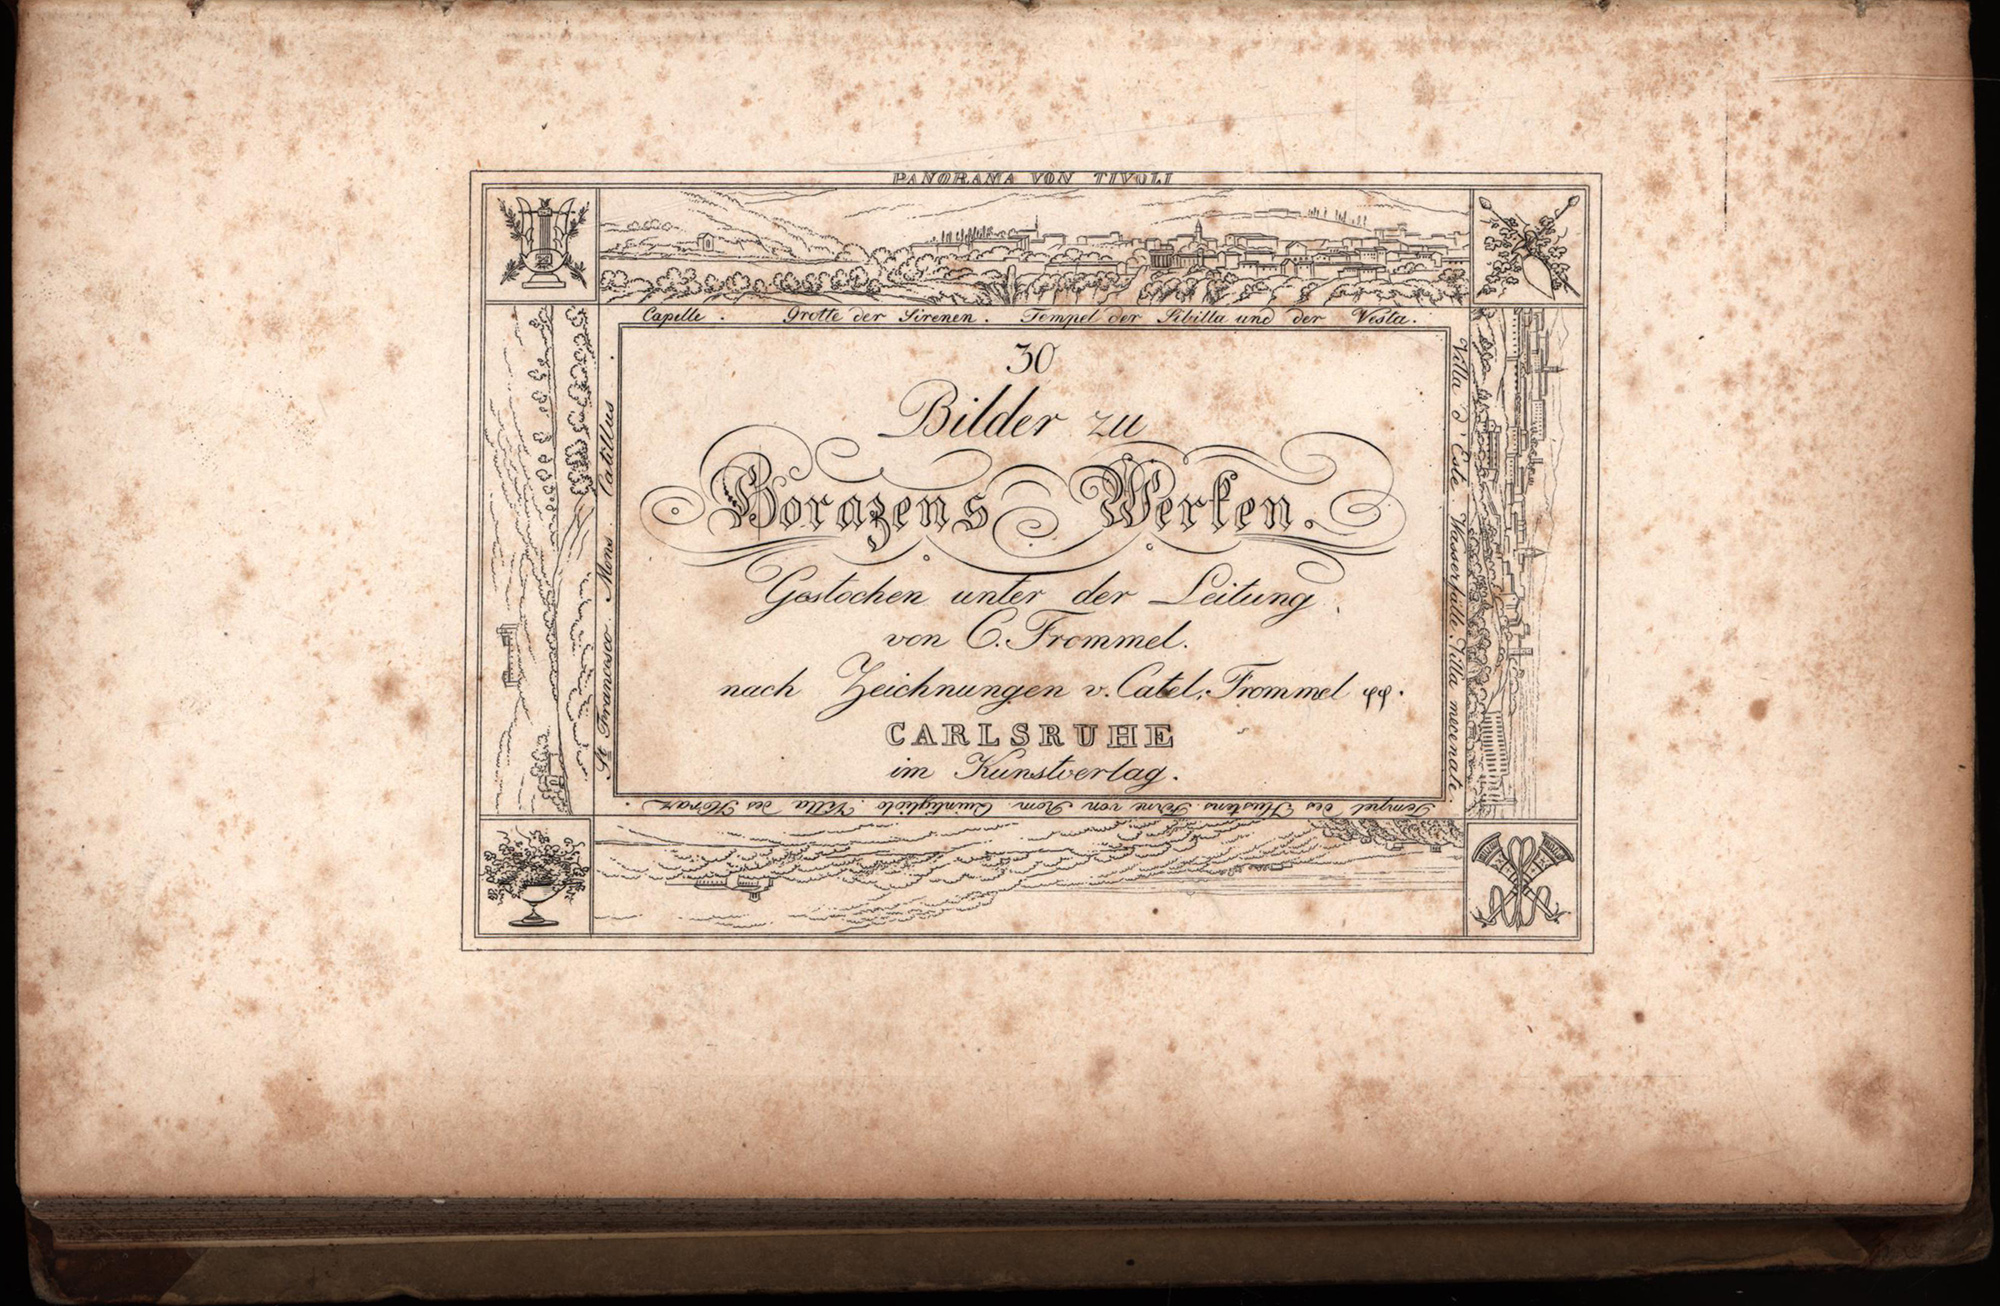 PANORAMA VON TIVOLI
Capelle . Grotte der Sirenen . Tempel der Sibilla und der Vesta .
Villa d'Este Wasserfälle . Villa mecenate .
Tempel des Hustens . Ferne von Rom . Quintigliolo . Villa des Horaz .
St. Francesco . Mons Catillus .
30
Bilder zu
Horazens Werken.
Gestochen unter der Leitung
von C. Frommel.
nach Zeichnungen v. Catel, Frommel pp.
CARLSRUHE
im Kunstverlag.